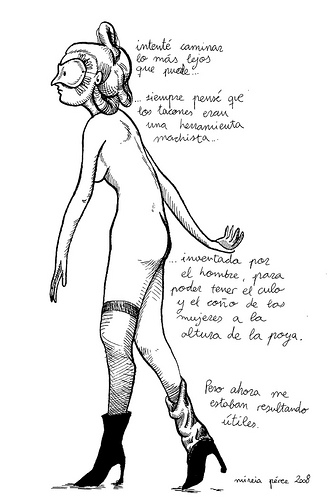 intenté caminar
lo más lejos
que pude...
... siempre pensé que
los tacones eran
una herramienta
machista...
... inventada por
el hombre, para
poder tener el culo
y el coño de las
mujeres a la
altura de la poya.
Pero ahora me
estaban resultando
útiles.
mireia pérez 2008